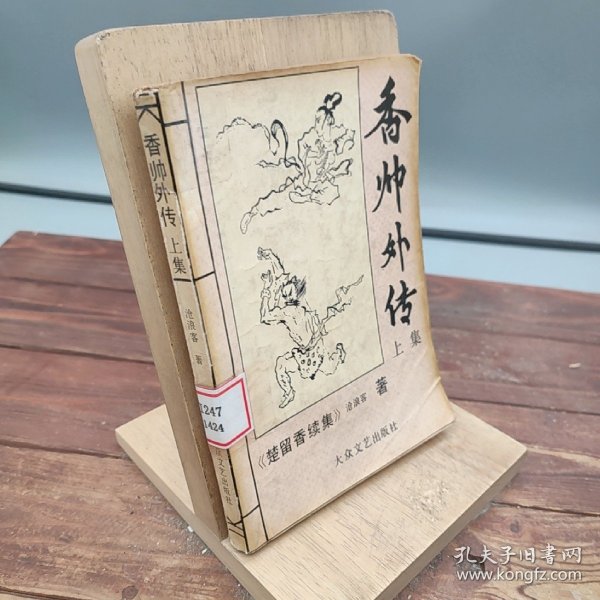 香帅外传
上集
《楚留香续集》沧浪客 著
大众文艺出版社
香帅外传 上集
沧浪客 著
247
1424
文艺出版社
孔夫子旧书网
www.kongfz.com